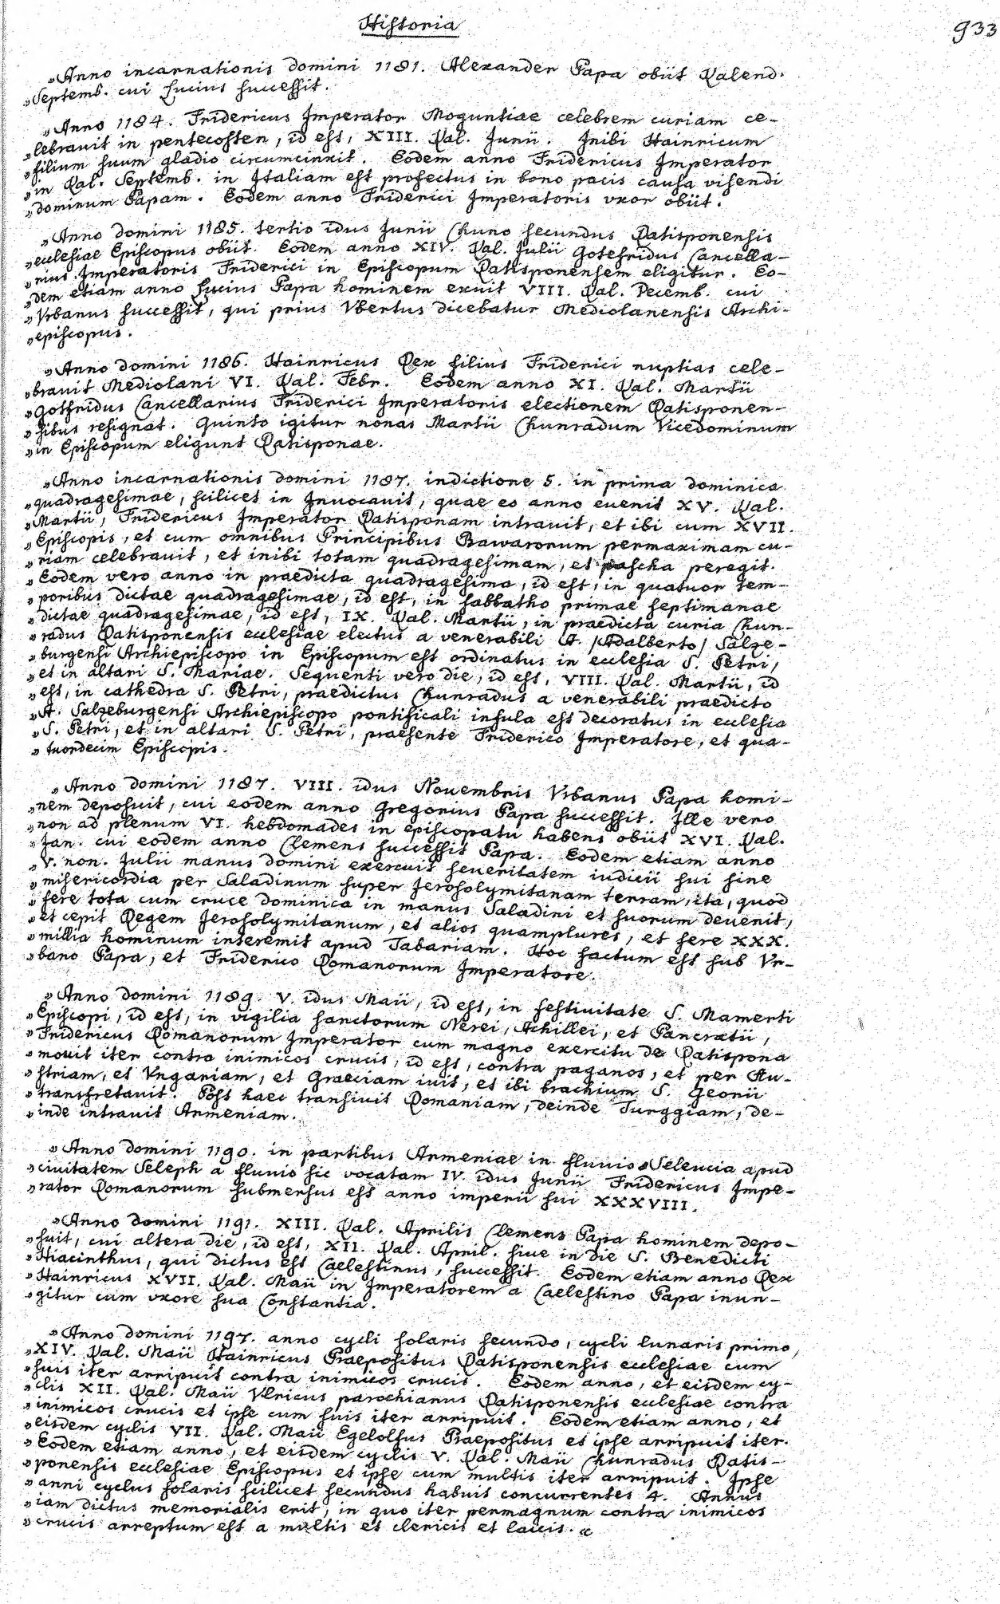 Historia
933
»Anno incarnationis domini 1181. Alexander Papa obiit Kalend.
»Septemb. cui Lucius successit.
»Anno 1184. Fridericus Imperator Moguntiae celebrem curiam ce-
»lebrauit in pentecosten, id est, XIII. Kal. Junii. Inibi Hainricum
»filium suum gladio circumcinxit. Eodem anno Fridericus Imperator
»in Kal. Septemb. in Italiam est profectus in bono pacis causa visendi
»dominum Papam. Eodem anno Friderici Imperatoris vxor obiit.
»Anno domini 1185. tertio idus Junii Chuno secundus Ratisponensis
»ecclesiae Episcopus obiit. Eodem anno XIV. Kal. Julii Gotefridus Cancella-
»rius Imperatoris Friderici in Episcopum Ratisponensem eligitur. Eo-
»dem etiam anno Lucius Papa hominem exuit VIII. Kal. Decemb. cui
»Vrbanus successit, qui prius Vbertus dicebatur Mediolanensis Archi-
»episcopus.
»Anno domini 1186. Hainricus Rex filius Friderici nuptias cele-
»brauit Mediolani VI. Kal. Febr. Eodem anno XI. Kal. Martii
»Gotfridus Cancellarius Friderici Imperatoris electionem Ratisponen-
»sibus resignat. Quinto igitur nonas Martii Chunradum Vicedominum
»in Episcopum eligunt Ratisponae.
»Anno incarnationis domini 1187. indictione 5. in prima dominica
»quadragesimae, scilicet in Inuocauit, quae eo anno euenit XV. Kal.
»Martii, Fridericus Imperator Ratisponam intrauit, et ibi cum XVII.
»Episcopis, et cum omnibus Principibus Bawarorum permaximam cu-
»riam celebrauit, et inibi totam quadragesimam, et pascha peregit.
»Eodem vero anno in praedicta quadragesima, id est, in quatuor tem-
»poribus dictae quadragesimae, id est, in sabbatho primae septimanae
»dictae quadragesimae, id est, IX. Kal. Martii, in praedicta curia Chun-
»radus Ratisponensis ecclesiae electus a venerabili A. /Adalberto/ Salze-
»burgensi Archiepiscopo in Episcopum est ordinatus in ecclesia S. Petri,
»et in altari S. Mariae. Sequenti vero die, id est, VIII. Kal. Martii, id
»est, in cathedra S. Petri, praedictus Chunradus a venerabili praedicto
»A. Salzeburgensi Archiepiscopo pontificali insula est decoratus in ecclesia
»S. Petri, et in altari S. Petri, praesente Friderico Imperatore, et qua-
»tuordecim Episcopis.
»Anno domini 1187. VIII. idus Nouembris Vrbanus Papa homi-
»nem deposuit, cui eodem anno Gregorius Papa successit. Ille vero
»non ad plenum VI. hebdomades in episcopatu habens obiit XVI. Kal.
»Jan. cui eodem anno Clemens successit Papa. Eodem etiam anno
»V. non. Julii manus domini exercuit seueritatem iudicii sui sine
»misericordia per Saladinum super Jerosolymitanam terram, ita, quod
»fere tota cum cruce dominica in manus Saladini et suorum deuenit,
»et cepit Regem Jerosolymitanum, et alios quamplures, et fere XXX.
»millia hominum interemit apud Tabariam. Hoc factum est sub Vr-
»bano Papa, et Friderico Romanorum Imperatore.
»Anno domini 1189. V. idus Maii, id est, in festiuitate S. Mamerti
»Episcopi, id est, in vigilia sanctorum Nerei, Achillei, et Pancratii,
»Fridericus Romanorum Imperator cum magno exercitu de Ratispona
»mouit iter contra inimicos crucis, id est, contra paganos, et per Au-
»striam, et Vngariam, et Graeciam iuit, et ibi brachium S. Georii
»transfretauit. Post haec transiuit Romaniam, deinde Turggiam, de-
»inde intrauit Armeniam.
»Anno domini 1190. in partibus Armeniae in fluuio Seleucia apud
»ciuitatem Seleph a fluuio sic vocatam IV. idus Junii Fridericus Impe-
»rator Romanorum submersus est anno imperii sui XXXVIII.
»Anno domini 1191. XIII. Kal. Aprilis Clemens Papa hominem depo-
»suit, cui altera die, id est, XII. Kal. April. siue in die S. Benedicti
»Hiacinthus, qui dictus est Caelestinus, successit. Eodem etiam anno Rex
»Hainricus XVII. Kal. Maii in Imperatorem a Caelestino Papa inun-
»gitur cum vxore sua Constantia.
»Anno domini 1197. anno cycli solaris secundo, cycli lunaris primo,
»XIV. Kal. Maii Hainricus Praepositus Ratisponensis ecclesiae cum
»suis iter arripuit contra inimicos crucis. Eodem anno, et eisdem cy-
»clis XII. Kal. Maii Vlricus parochianus Ratisponensis ecclesiae contra
»inimicos crucis et ipse cum suis iter arripuit. Eodem etiam anno, et
»eisdem cyclis VII. Kal. Maii Egelolfus Praepositus et ipse arripuit iter.
»Eodem etiam anno, et eisdem cyclis V. Kal. Maii Chunradus Ratis-
»ponensis ecclesiae Episcopus et ipse cum multis iter arripuit. Ipse
»anni cyclus solaris scilicet secundus habuit concurrentes 4. Annus
»iam dictus memorialis erit, in quo iter permagnum contra inimicos
»crucis arreptum est a multis et clericis et laicis.